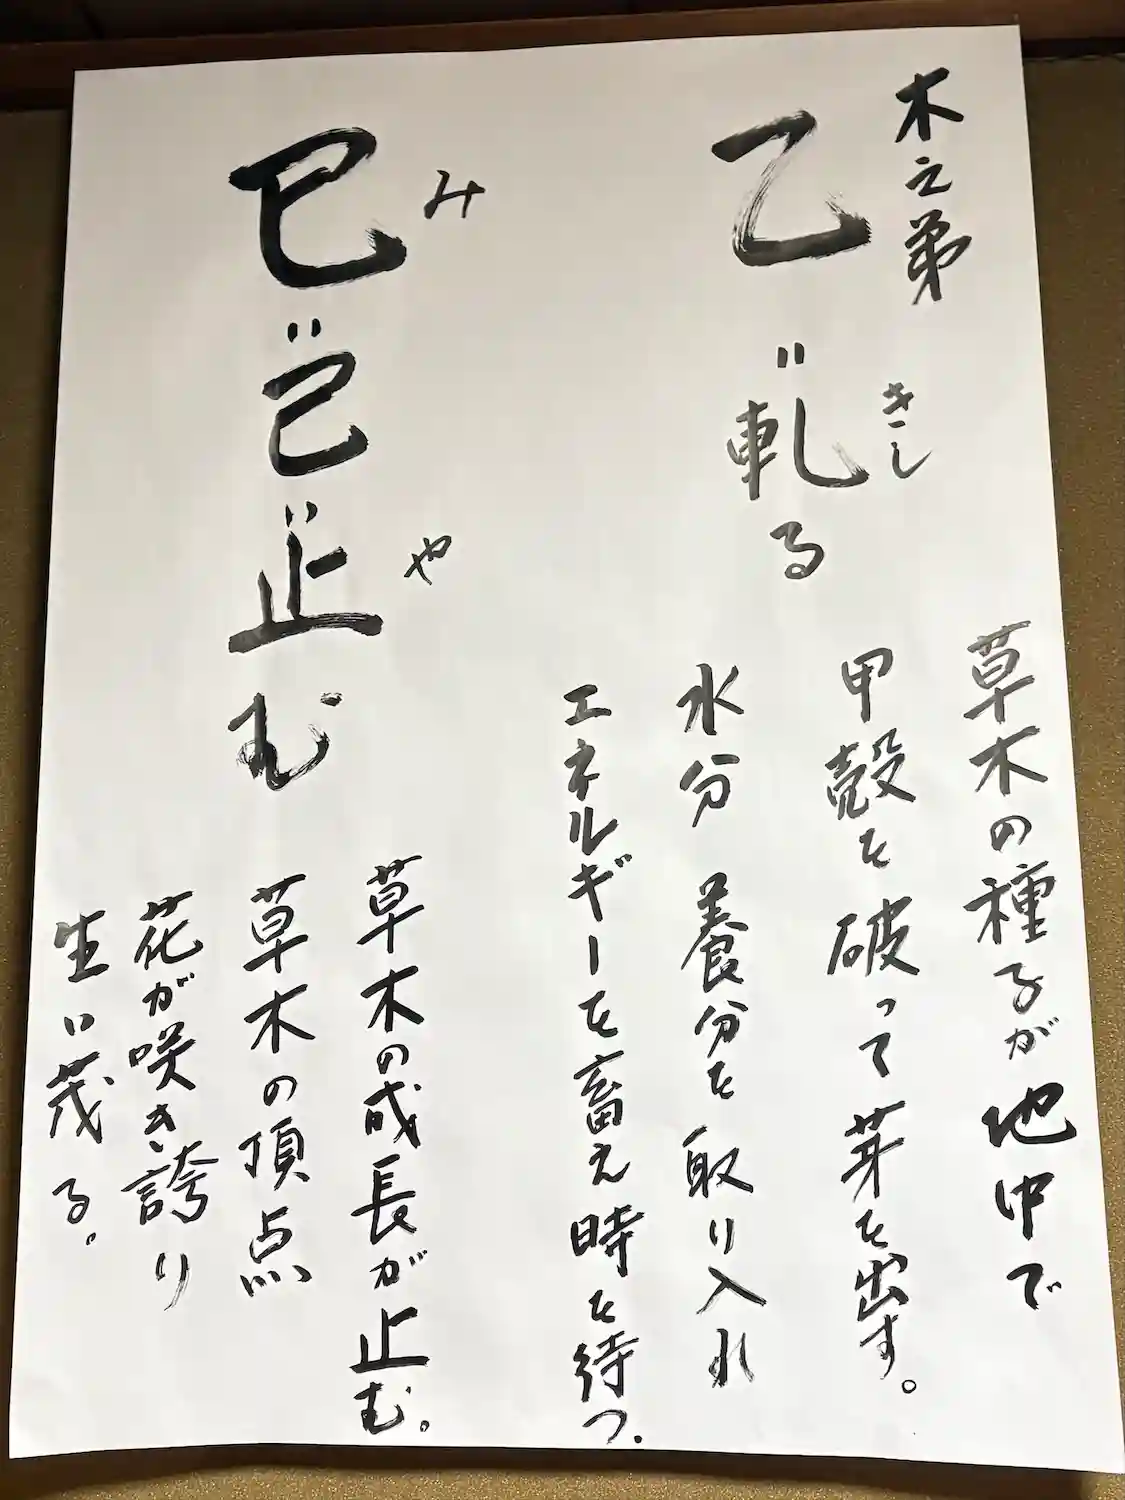 木之弟
乙〃軋る
きし
草木の種子が地中で
甲殻を破って芽を出す。
水分養分を取り入れ
エネルギーを蓄え時を待つ.
み
巳〃已〃止む
や
草木の成長が止む。
草木の頂点
花が咲き誇り
生い茂る。